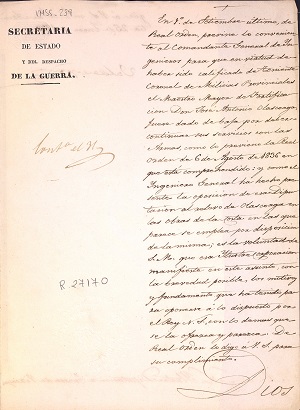 VMSS-239
SECRETARIA
DE ESTADO
Y DEL DESPACHO
DE LA GUERRA.
R 27170
En 1º de Setiembre último, de
Real Orden, previne lo convenien
te al Comandante General de In-
genieros para que en virtud de
haber sido calificado de
de Milicias Provinciales
el Maestro Mayor de Fortifica
cion Don José Antonio
fuese dado de baja por deber
continuar sus servicios con las
Armas, como lo previene la Real
orden de 6 de Agosto de 1836 en
que está comprendido; y como el
Ingeniero General ha hecho pre-
sente la oposicion de esa Dipu-
tacion al relevo de
las obras de la Corte en las que
parece se emplea por disposicion
de la misma; es la voluntad de
S. M. que esa Ilustre corporacion
manifieste en este asunto, con
la brevedad posible, los motivos
y fundamento que ha tenido pa
ra oponerse á lo dispuesto por
el Rey N. S. con lo demas que
se la ofrezca y parezca. De
Real Orden lo digo a V. S. para
su cumplimiento.
Dios